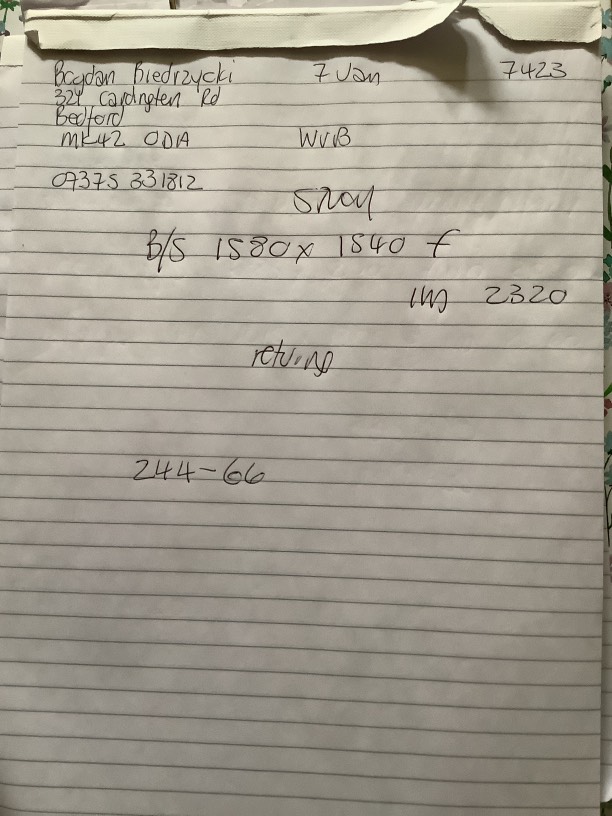 Bogdan Biedrzycki 7 Jan 7423
324 Cardington Rd
Bedford
MK42 0DA WVB
07375 331812
B/S 1580 x 1540 f
2320
244-66